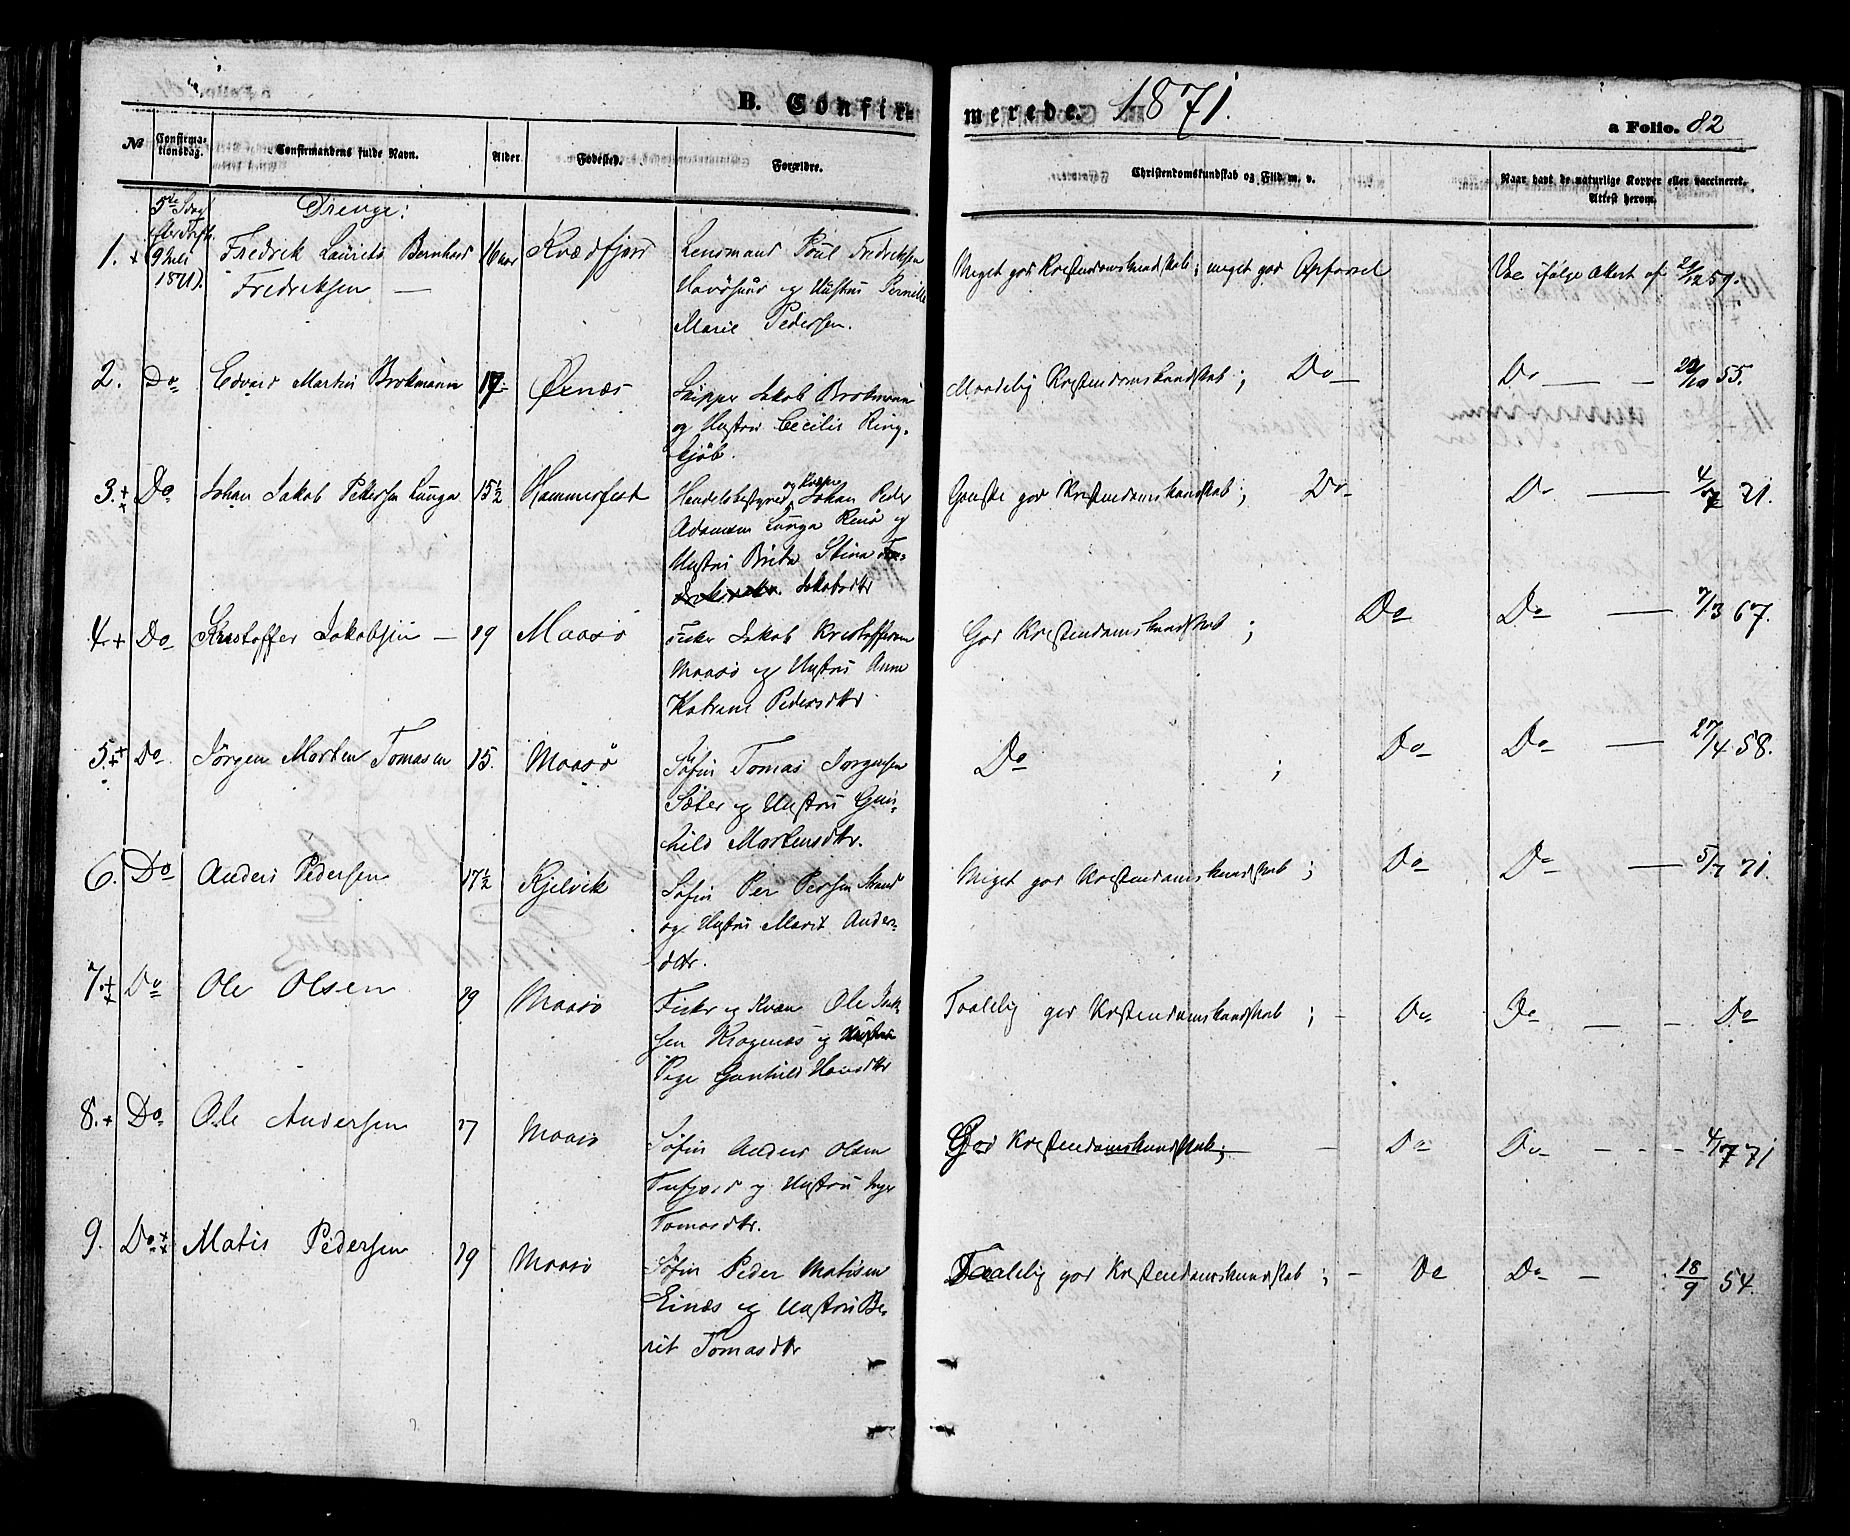 B. Confir-
merede. 1871.
a Folio. 82
No
Confirma-
tionsdag.
Confirmandens fulde Navn.
Alder
Fødested.
Forældre.
Christendomskundskab og Flid m. v.
Naar havt de naturlige Kopper eller vaccineret.
Attest herom.
5te Sdag
efter Treft.
9 Juli
1871).
Drenge:
1. + Fredrik Laurits Bernhard 16 aar Kvædfjord Lensmand Poul Fredriksen Meget god Kristendomskundskab; meget god Opførsel Vac ifølge Attest af 59.
Fredriksen — Havøsund og Hustru Pernille
Marie Pedersen.
2. Do Edvard Martin Brokmann 17 Øxnæs Skipper Jakob Brokmann Maadelig Kristendomskundskab; Do Do — 55.
og Hustru Cecilie Ring-
kjøb.
3. ++ Do Johan Jakob Pettersen Lunga 15½ Hammerfest Handelsbestyrer og Johan Peder Ganske god Kristendomskundskab; Do Do — 4/7 71.
Adamsen Lunga Rensø og
Hustru Brita Stina
Jakobsdtr
4. + Do Kristoffer Jakobsen — 19 Maasø Fisker Jakob Kristoffersen God Kristendomskundskab; Do Do — 7/3 67.
Maasø og Hustru Anne
Katrine Pedersdtr
5. ++ Do Jørgen Morten Tomasen 15. Maasø Søfin Tomas Jørgensen Do ; Do Do — 27/4 58.
Sæter og Hustru Gun-
hild Mortensdtr.
6. Do Anders Pedersen 17½ Kjelvik Søfin Per Persen Strand Meget god Kristendomskundskab; Do Do — 5/7 71.
og Hustru Marit Anders-
dtr.
7. ++ Do Ole Olsen 19 Maasø Fisker og Kvæn Ole Taalelig god Kristendomskundskab; — Do Do — — Do
sen og
Pige Gunhild Hansdtr
8. + Do Ole Andersen 17 Maasø Søfin Anders Olsen God Kristendomskundskab; — Do Do — — — 4/7 71
Tufjord og Hustru Inger
Tomasdtr.
9. Do ++ Matis Pedersen 19 Maasø Søfin Peder Matisen Taalelig god Kristendomskundskab; — Do Do — 18/9 54.
Einæs og Hustru Be-
rit Tomasdtr